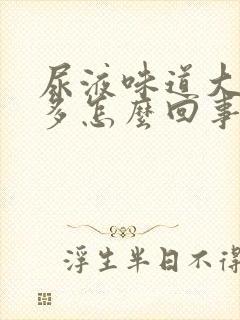 尿液味道大
多怎麼回事
浮生半日不得